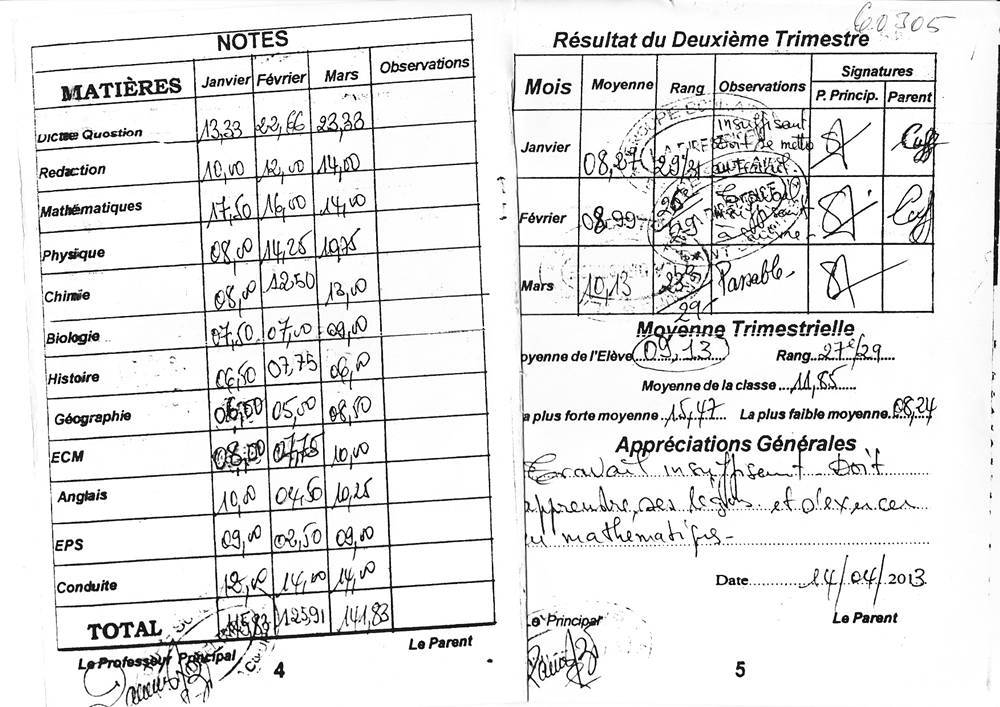 NOTES
MATIÈRES Janvier Février Mars Observations
Dictée Question 13,33 22,66 23,33
Redaction 10,00 12,00 14,00
Mathématiques 17,50 16,00 14,00
Physique 08,00 14,25 10,75
Chimie 08,00 12,50 13,00
Biologie 07,50 07,00 09,00
Histoire 06,50 07,75 06,00
Géographie 06,50 05,00 08,50
ECM 08,00 07,75 10,00
Anglais 10,00 04,50 10,25
EPS 09,00 02,50 09,00
Conduite 12,00 14,00 14,00
TOTAL 115,83 125,91 141,83
Le Professeur Principal
Le Parent
4
60305
Résultat du Deuxième Trimestre
Mois Moyenne Rang Observations Signatures
P. Princip. Parent
Janvier 08,27 29/31 insuffisant Doit se mettre au travail
Février 08,99 29 Travail insuffisant
Mars 10,13 23e 29 Passable
Moyenne Trimestrielle
oyenne de l'Elève 09,13 Rang 27e/29
Moyenne de la classe 11,85
a plus forte moyenne 15,47 La plus faible moyenne 08,24
Appréciations Générales
Travail insuffisant Doit
apprendre ses leçons et s'exercer
en mathématiques
Date 14/04/2013
Le Principal
Le Parent
5